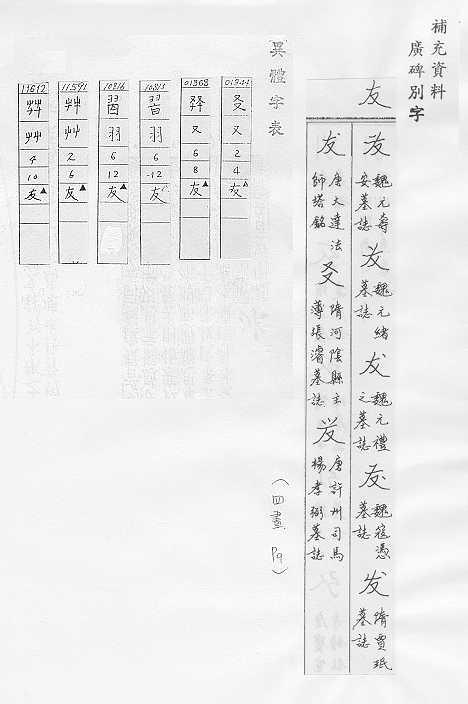 補充資料
廣碑別字
友
友
魏元壽
安墓誌
友
魏元緒
墓誌
友
魏元禮
之墓誌
魏寇憑
墓誌
隋賈珉
墓誌
唐大達法
師塔銘
隋河陰縣主
薄張濬墓誌
唐許州司馬
楊孝弼墓誌
(四畫 P9)
異體字表
又
2
4
友▲
01368
又
6
8
友▲
羽
6
12
友
10816
羽
6
12
友▲
11591
艸
2
6
友▲
11612
艸
4
10
友▲